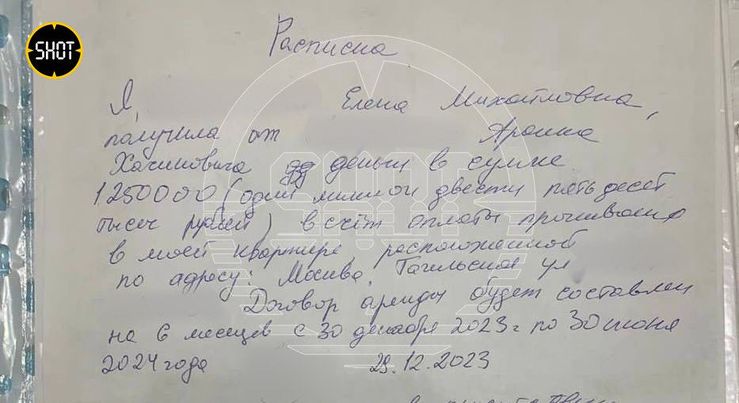 SHOT
Расписка
Я, Елена Михайловна,
получила от Арсина
Хачиковича деньги в сумме
1250000 (один миллион двести пятьдесят
тысяч рублей) в счёт оплаты проживания
в моей квартире, расположенной
по адресу: Москва, Тагильская ул
Договор аренды будет составлен
на 6 месяцев с 30 декабря 2023г по 30 июня
2024 года 29.12.2023